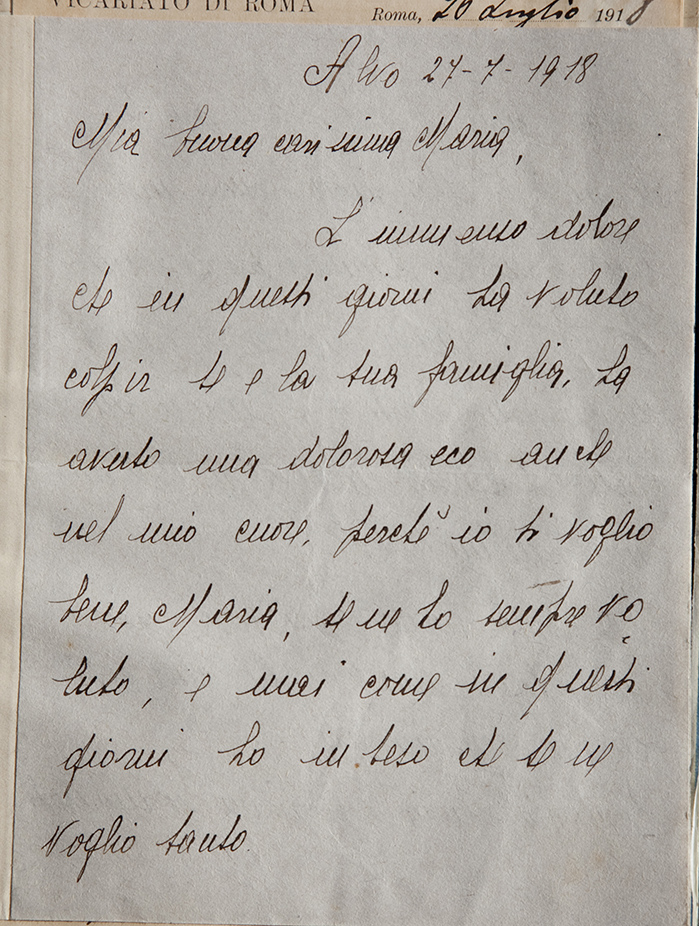 VICARIATO DI ROMA
Roma, 20 Luglio 1918
Alvo 27-7-1918
Mia buona carissima Maria,
L'immenso dolore
che in questi giorni ha voluto
colpir te e la tua famiglia, ha
avuto una dolorosa eco anche
nel mio cuore, perchè io ti voglio
bene, Maria, te ne ho sempre vo
luto, e mai come in questi
giorni ho inteso che te ne
voglio tanto.